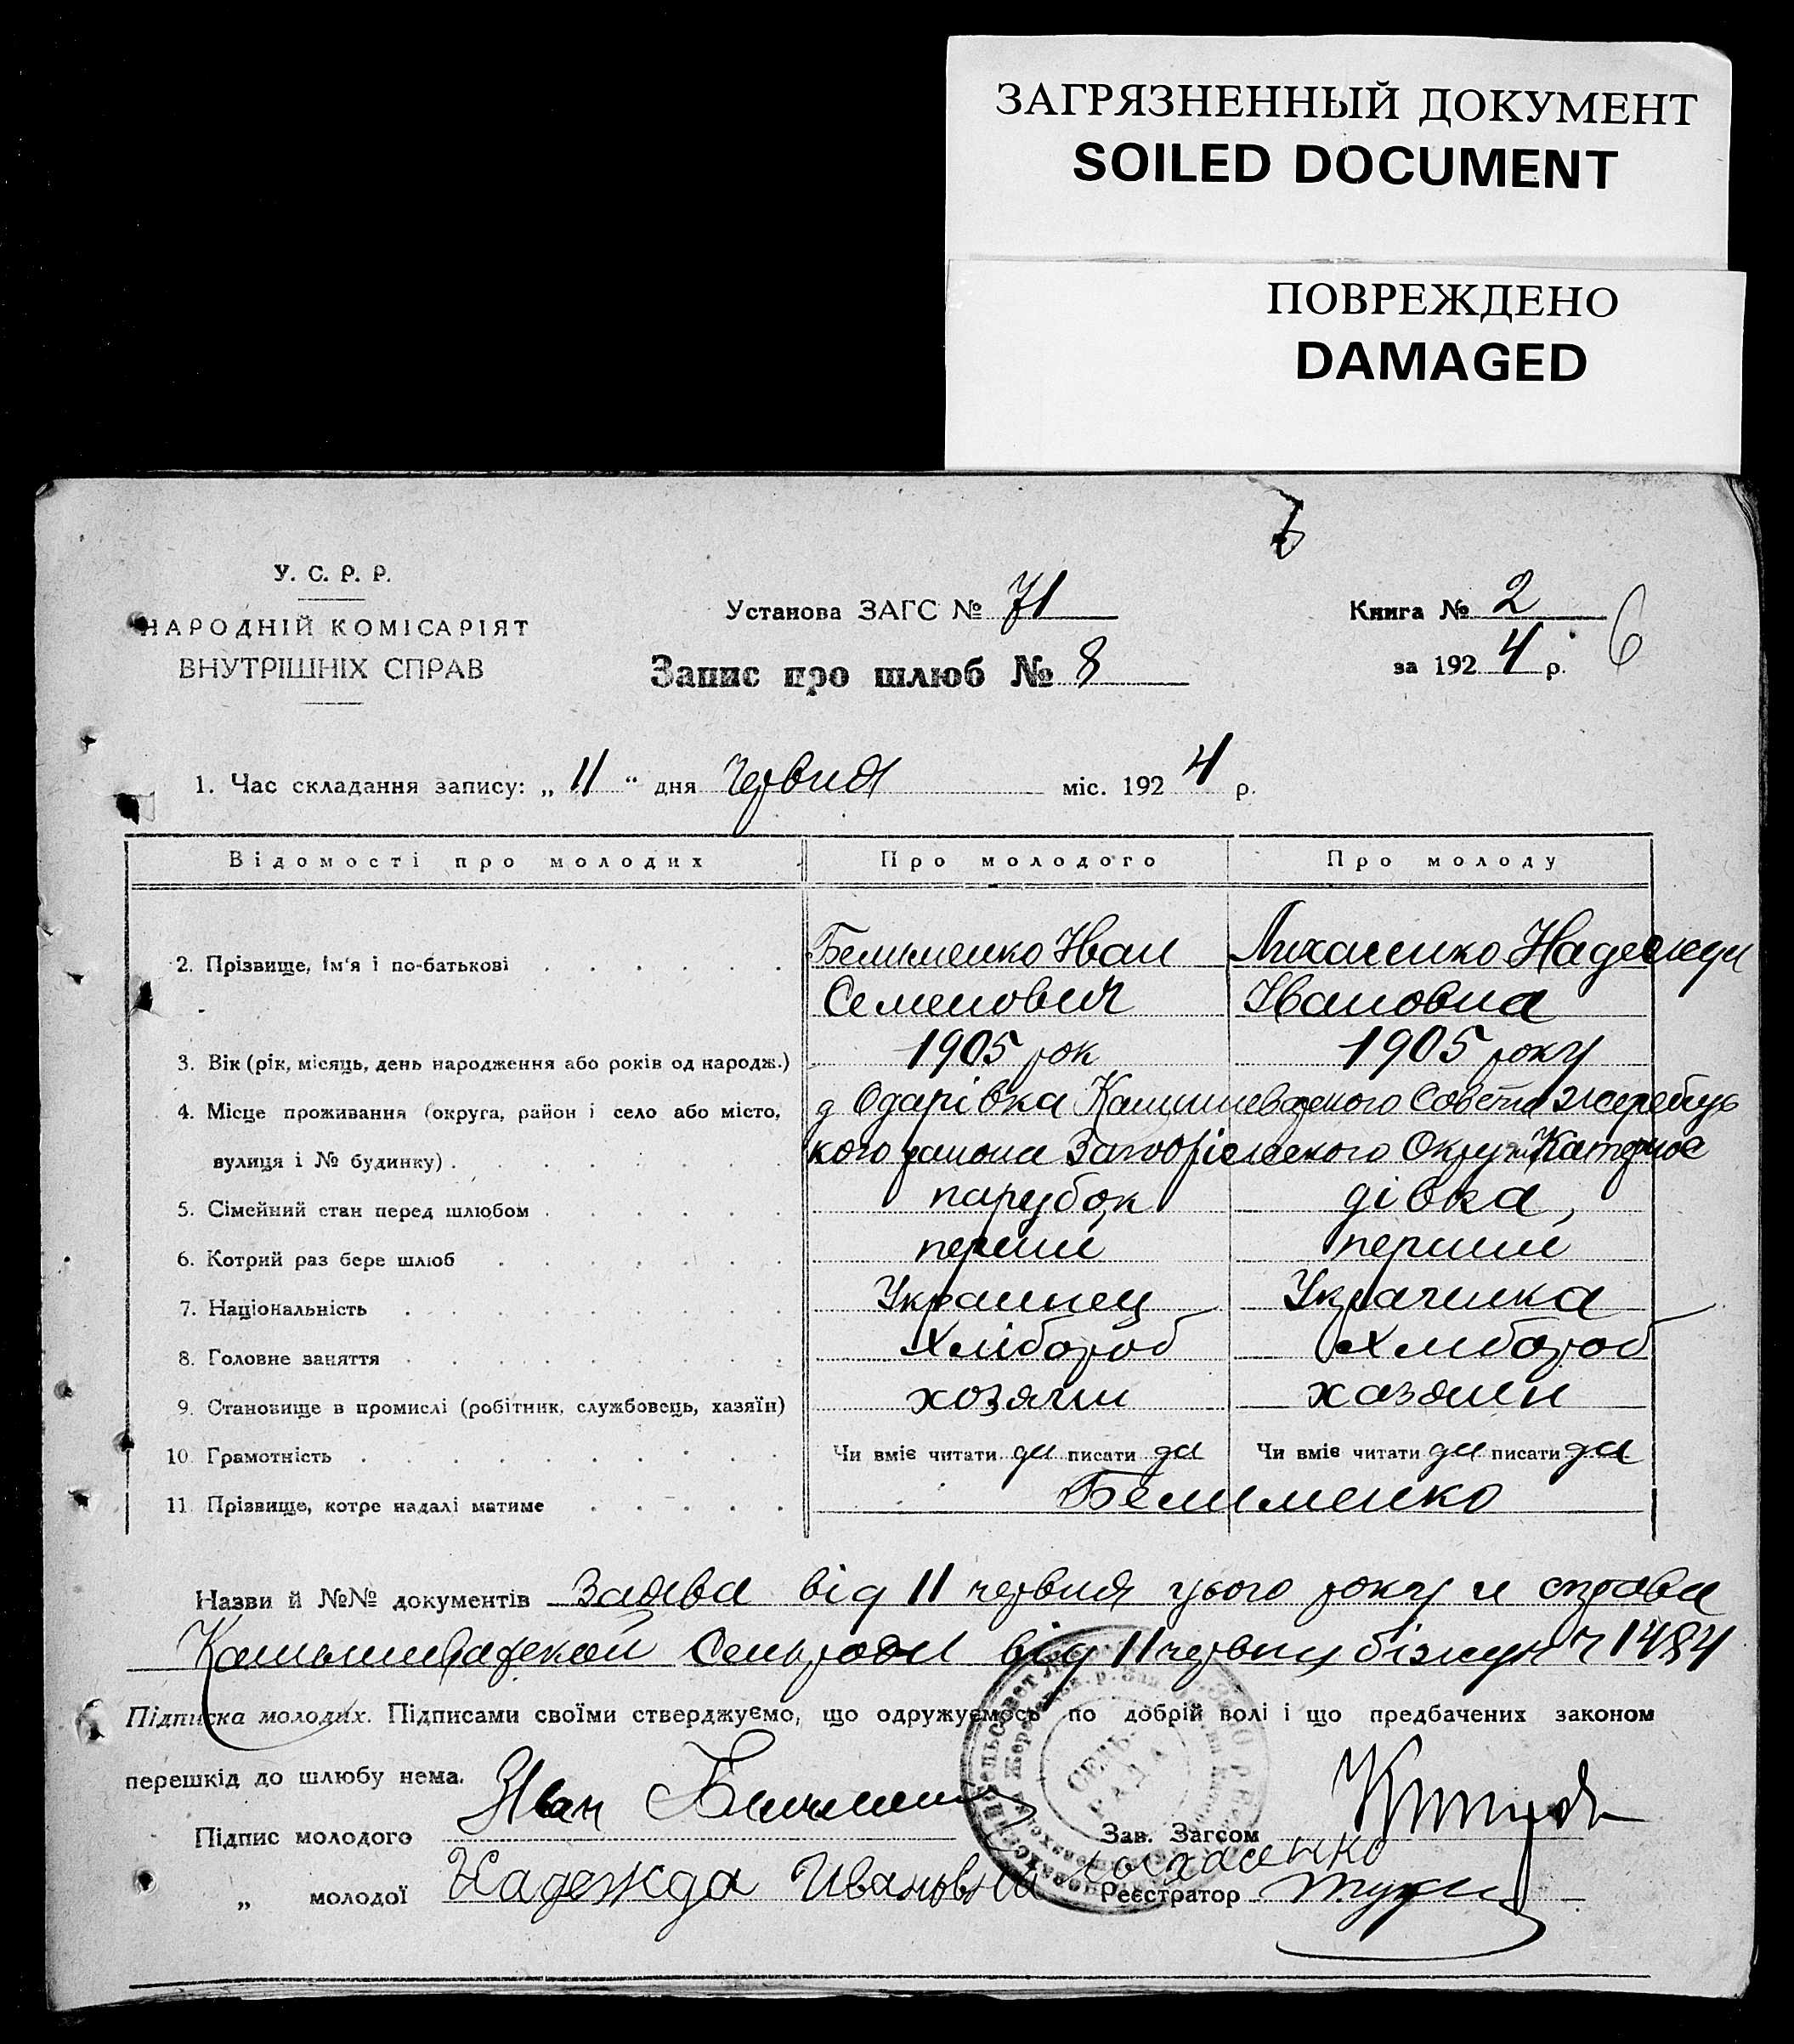 ЗАГРЯЗНЕННЫЙ ДОКУМЕНТ
SOILED DOCUMENT
ПОВРЕЖДЕНО
DAMAGED
У. С. Р. Р.
НАРОДНІЙ КОМІСАРІЯТ
ВНУТРІШНІХ СПРАВ
Установа ЗАГС № 71
Запис про шлюб № 8
Книга № 2
за 1924 р. 6
1. Час складання запису: „ 11 “ дня червня міс. 1924 р.
Відомості про молодих Про молодого Про молоду
2. Прізвище, ім'я і по-батькові Белименко Иван Лихасенко Надежди
Семенович Івановна
3. Вік (рік, місяць, день народження або років од народж.) 1905 рок 1905 року
4. Місце проживання (округа, район і село або місто, д Одарівка Камишевахского Совета жеребець
вулиця і № будинку) кого района Запорі Округи
5. Сімейний стан перед шлюбом парубок дівка,
6. Котрий раз бере шлюб перший перший
7. Національність Украинец Украчинка
8. Головне заняття Хлібороб Хлибороб
9. Становище в промислі (робітник, службовець, хазяїн) хозячин хазяин
10 Грамотність Чи вміє читати да писати да Чи вміє читати да писати да
11 Прізвище, котре надалі матиме Белименко
Назви й №№ документів Заява від 11 червня цього року и справа
від 11 червня 1484
Підписка молодих. Підписами своїми стверджуємо, що одружуємось по добрій волі і що предбачених законом
перешкід до шлюбу нема.
Підпис молодого Иван
Зав. Загсом
„ молодої Надежда Ивановна Лихасенко
Реєстратор
СЕЛЬ-
РАДА